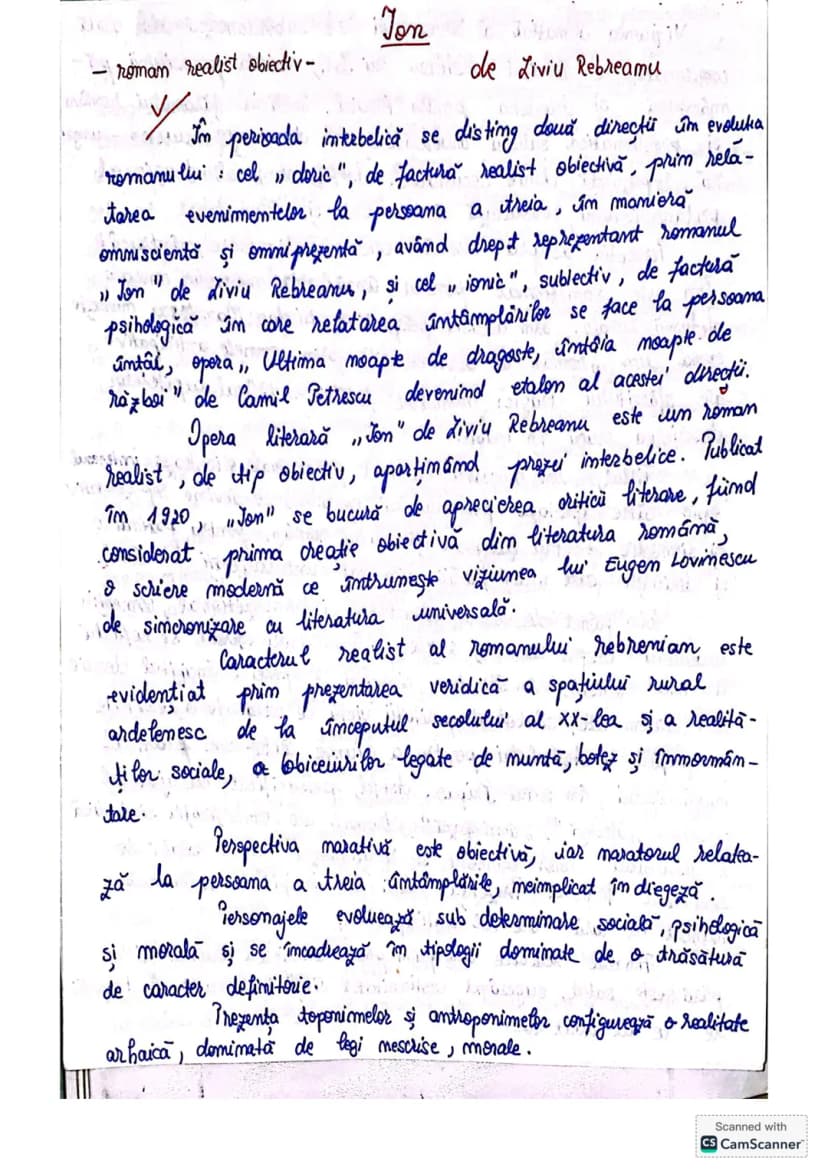 Ion
- roman realist obiectiv -
de Liviu Rebreanu
În perioada interbelică se disting două direcții în evoluția
romanului : cel „doric", de factură realist obiectivă, prin rela-
tarea evenimentelor la persoana a treia, în maniera
omniscientă și omniprezentă, având drept reprezentant romanul
„Ion" de Liviu Rebreanu, și cel „ionic", subiectiv, de factură
psihologică în care relatarea întâmplărilor se face la persoana
întâi, opera „Ultima noapte de dragoste, întâia noapte de
război" de Camil Petrescu devenind etalon al acestei direcții.
Opera literară „Ion" de Liviu Rebreanu este un roman
realist, de tip obiectiv, aparținând prozei interbelice. Publicat
în 1920, „Ion" se bucură de aprecierea criticii literare, fiind
considerat prima creație obiectivă din literatura română,
o scriere modernă ce întrunește viziunea lui Eugen Lovinescu
de sincronizare cu literatura universală.
Caracterul realist al romanului rebrenian este
evidențiat prin prezentarea veridică a spațiului rural
ardelenesc de la începutul secolului al XX-lea și a realită-
ților sociale, a obiceiurilor legate de nuntă, botez și înmormân-
tare.
Perspectiva narativă este obiectivă, iar naratorul relatea-
ză la persoana a treia întâmplările, neimplicat în diegeză.
Personajele evoluează sub determinare socială, psihologică
și morală și se încadrează în tipologii dominate de o trăsătură
de caracter definitorie.
Prezența toponimelor și antroponimelor configurează o realitate
arhaică, dominată de legi nescrise, morale.
Scanned with
CS CamScanner